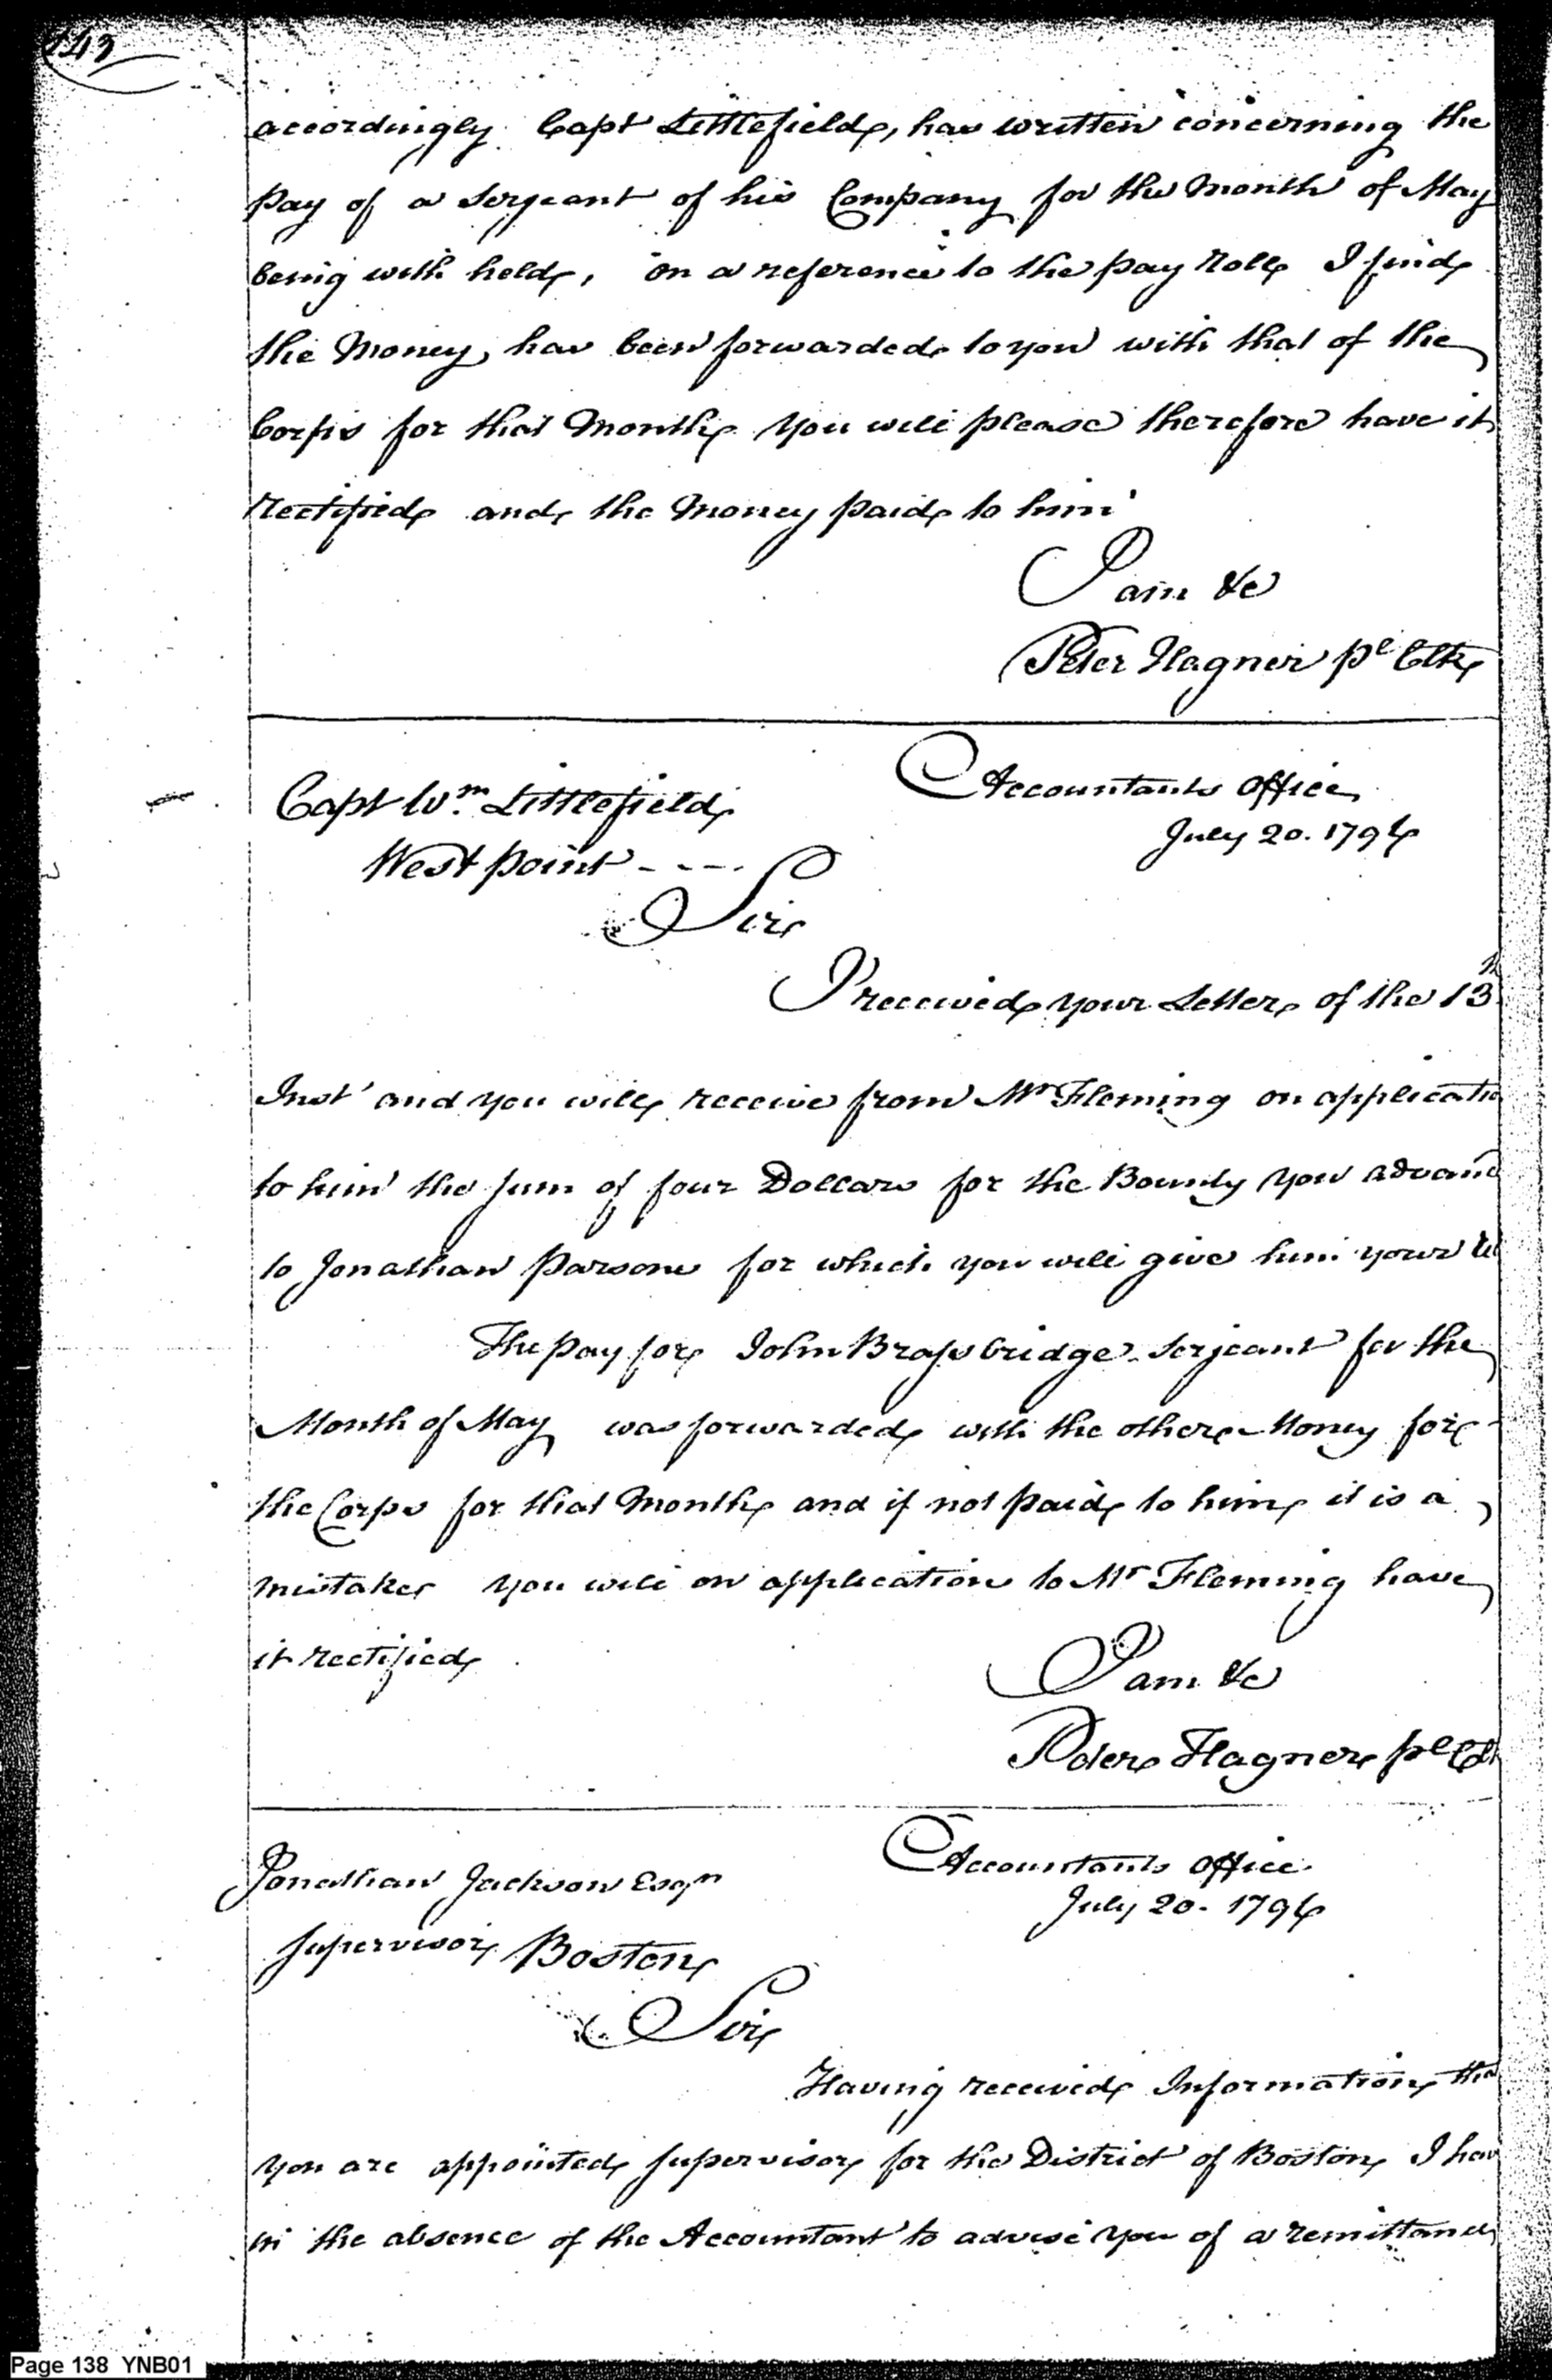 143
accordingly Capt Littlefield, has written concerning the
pay of a Serjeant of his Company for the Month of May
being with held, on a reference to the pay Roll I find
the Money has been forwarded to you with that of the
Corps for that Month you will please therefore have it
rectified and the Money paid to him
I am &c
Peter Hagner pl Clk
Capt Wm. Littlefield
West point - - - -
Accountants Office
July 20. 1794
Sir
I received your Letter of the 13th
Inst and you will receive from Mr Fleming on applicatio
to him the sum of four Dollars for the Bounty you advanc
to Jonathan Parsons for which you will give him your
The pay for John Brassbridge Serjeant for the
Month of May was forwarded with the other Money for
the Corps for that Month and if not paid to him it is a
mistake you will on application to Mr Fleming have
it rectified
I am &c
Peter Hagner pl Clk
Jonathan Jackson Esqr
Supervisor Boston
Accountants Office
July 20. 1794
Sir
Having received Information that
you are appointed Supervisor for the District of Boston I have
in the absence of the Accountant to advise you of a remittance
Page 138 YNB01